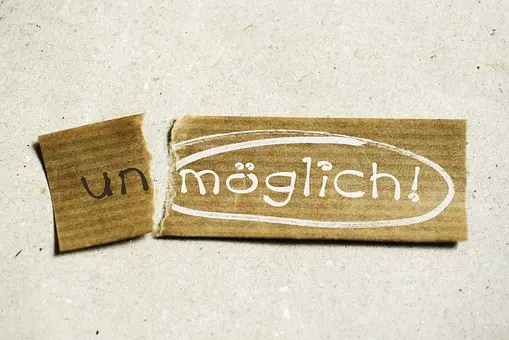 un möglich!